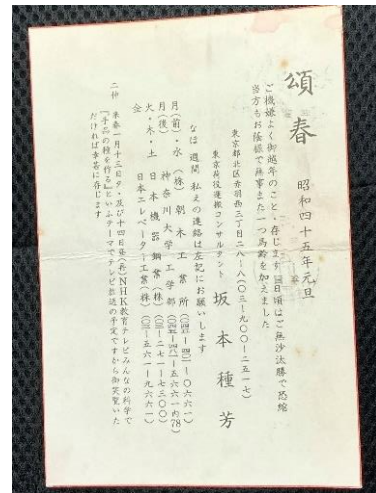 頌春
昭和四十五年元旦
ご機嫌よく御越年のことゝ存じます 日頃はご無沙汰勝で恐縮
当方もお蔭様で無事また一つ馬齢を加えました
東京都北区赤羽西三丁目二八ー八(〇三ー九〇〇ー二五一七)
東京荷役運搬コンサルタント 坂本種芳
なほ 週間 私えの連絡は左記にお願いします
月(前)・水 (株) 朝木工業所
月(後) 神奈川大学 工学部
火・木・土 日本機器鋼業(株)
金 日本エレベーター工業(株)
二伸 来春一月十三日夕、及び十四日昼(再)NHK教育テレビみんなの科学で
「手品の種を作る」といふテーマでテレビ放送の予定ですから御笑覧いた
だければ幸甚に存じます